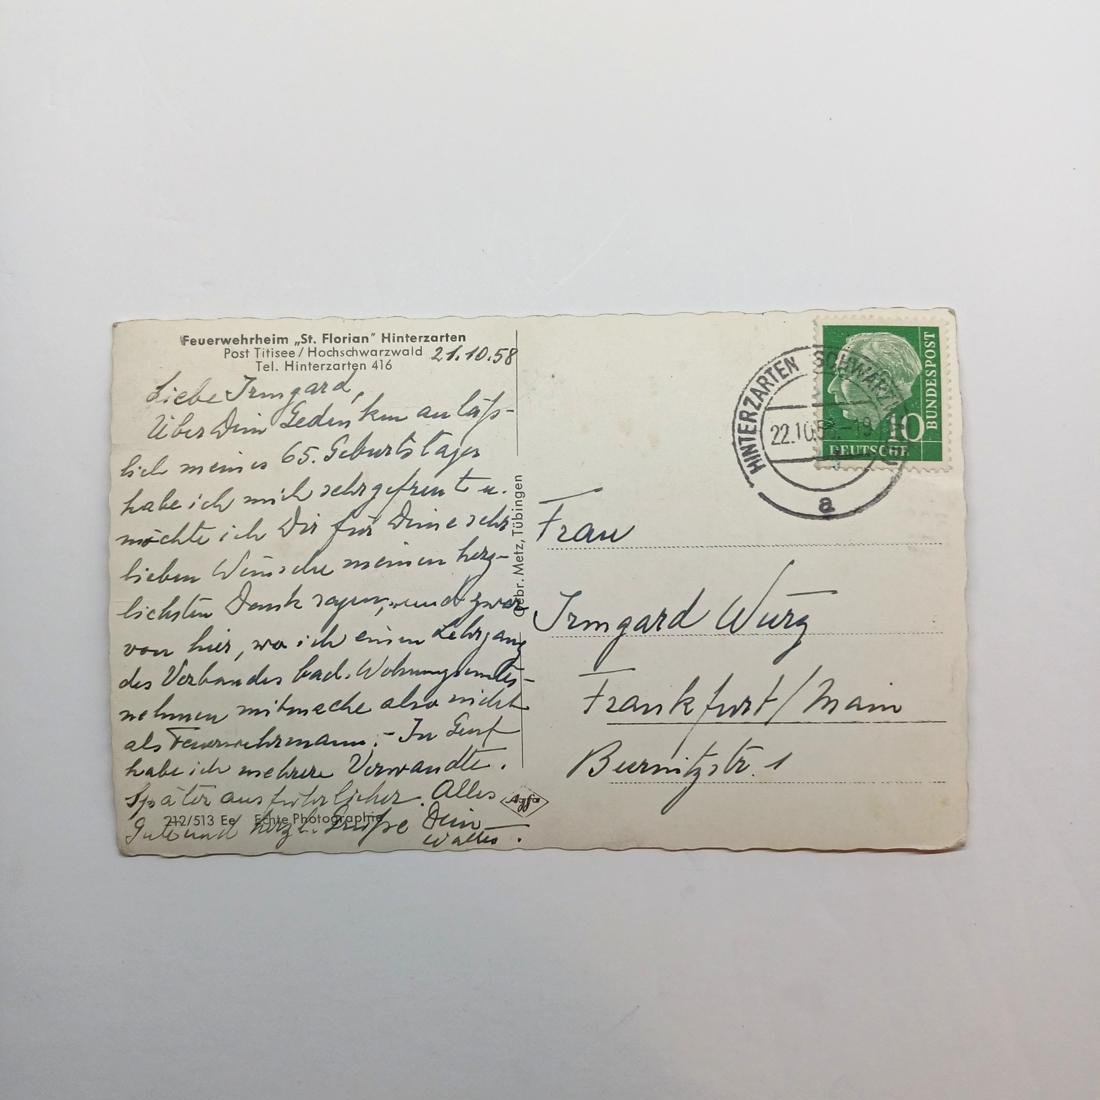 Feuerwehrheim „St. Florian" Hinterzarten
Post Titisee/Hochschwarzwald
Tel. Hinterzarten 416
21.10.58
Liebe Irmgard,
Über Dein Gedenken anläß-
lich meines 65. Geburtstages
habe ich mich sehr gefreut u.
möchte ich Dir für Deine sehr
lieben Wünsche meinen herz-
lichsten Dank sagen, und zwar
von hier, wo ich einen Lehrgang
des Verbandes bad. Wohnungsunter-
nehmen mitmache also nicht
als Feuerwehrmann. - In Genf
habe ich mehrere Verwandte.
Später ausführlicher. Alles
Gute und herzl. Grüße Dein
Walter.
212/513 Ee Echte Photographie
Gebr. Metz, Tübingen
Agfa
HINTERZARTEN
22.10.58.-19
a
10
DEUTSCHE
BUNDESPOST
Frau
Irmgard Wurz
Frankfurt/Main